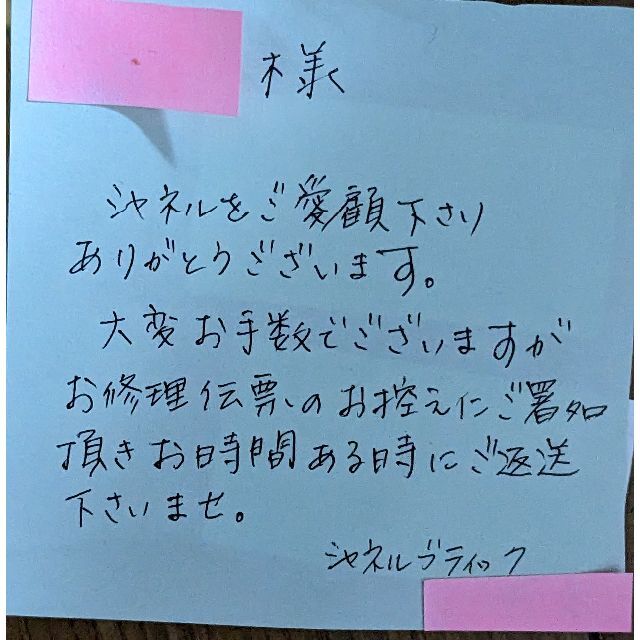 様
シャネルをご愛顧下さり
ありがとうございます。
大変お手数でございますが
お修理伝票のお控えにご署名
頂きお時間ある時にご返送
下さいませ。
シャネルブティック